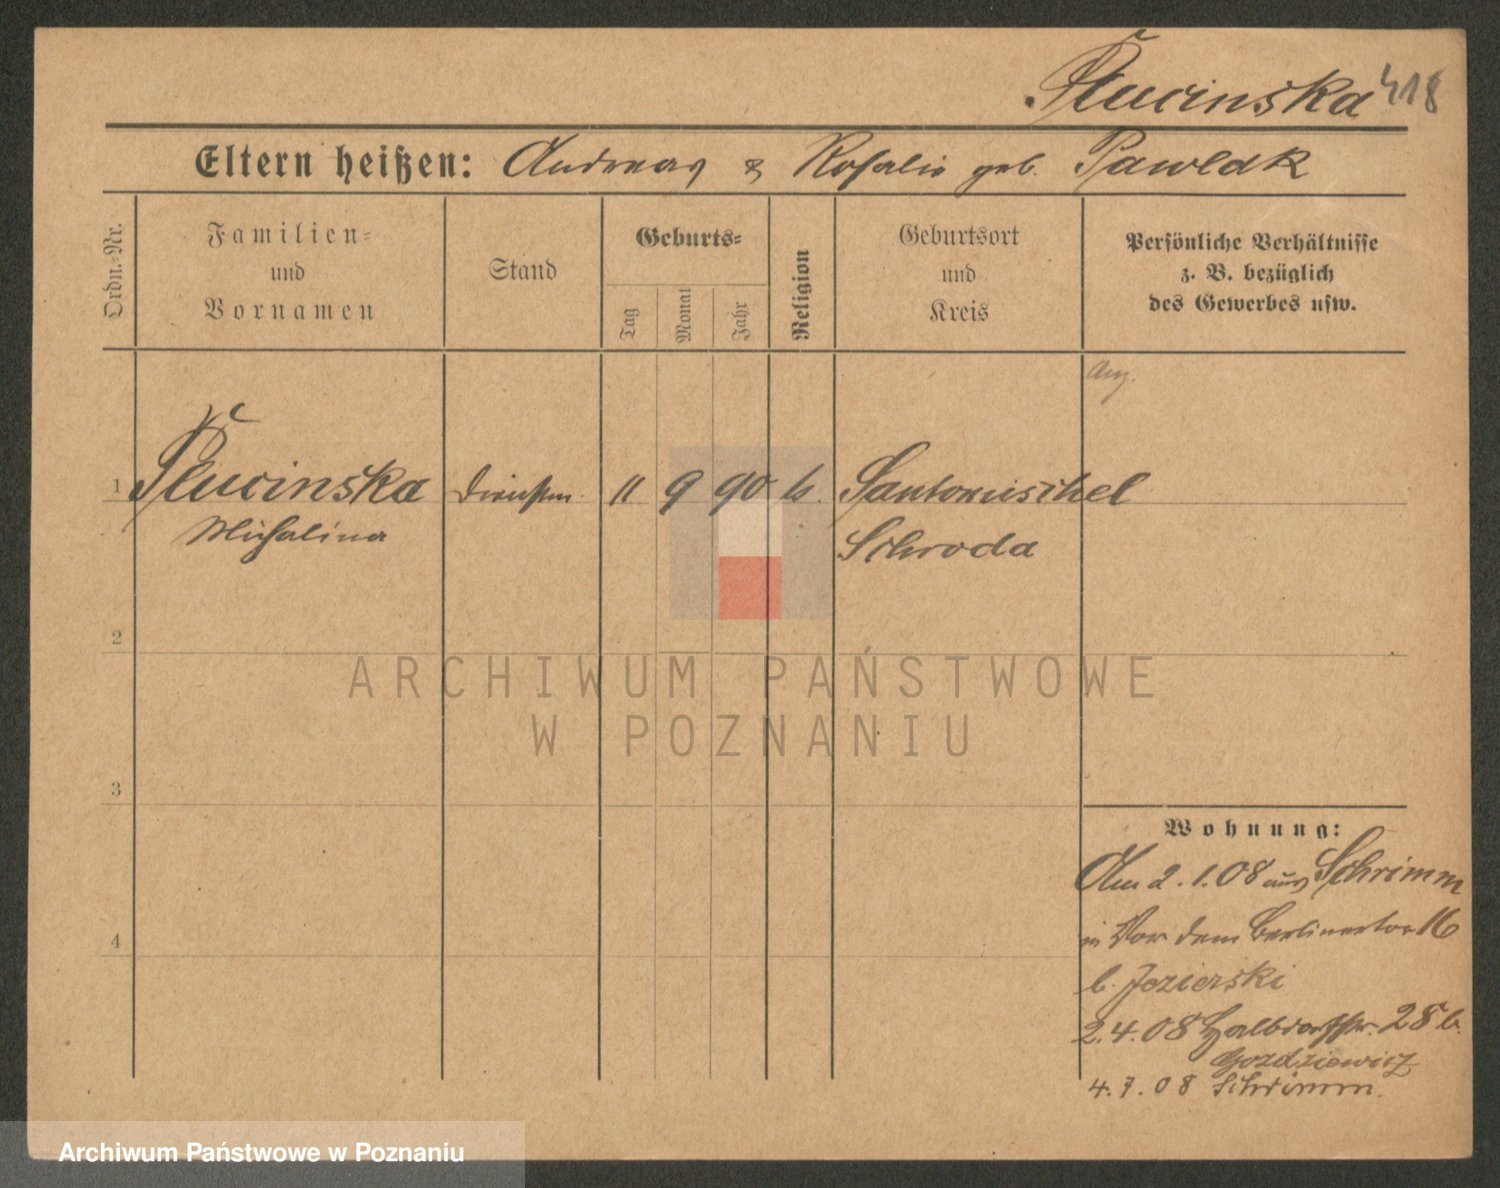 Plucinska 418
Eltern heißen: Andreas & Rosalie geb. Pawlak
Ordn.-Nr.
Familien-
und
Vornamen
Stand
Geburts-
Tag
Monat
Jahr
Religion
Geburtsort
und
Kreis
Persönliche Verhältnisse
z. B. bezüglich
des Gewerbes usw.
Ang.
1 Plucinska Dienstm. 11 9 90 k. Santomischel
Michalina Schroda
2
3
4
ARCHIWUM PAŃSTWOWE
W POZNANIU
Wohnung:
Am 2.1.08 aus Schrimm
in Vor dem Berlinertor 16
b. Jezierski
2.4.08 Halbdorfstr. 28 b.
Gozdziewicz
4.7.08 Schrimm.
Archiwum Państwowe w Poznaniu